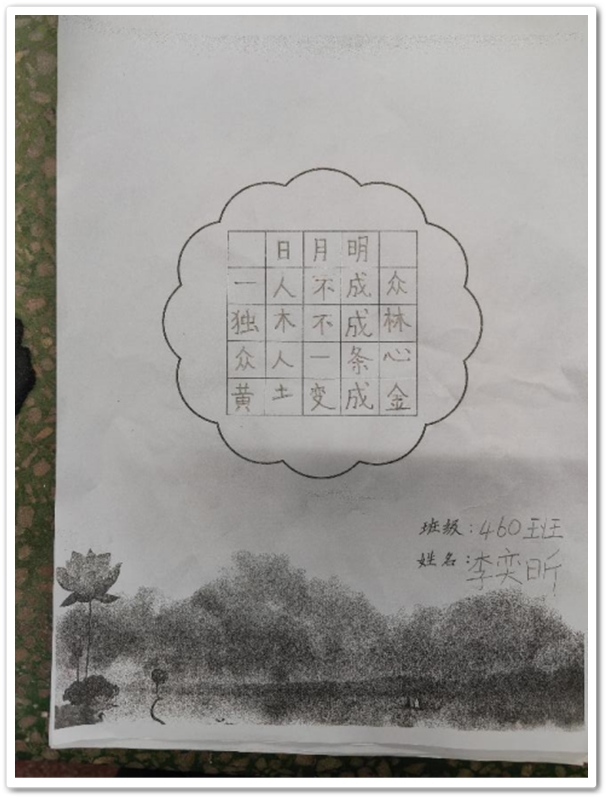 日月明
一人不成众
独木不成林
众人一条心
黄土变成金
班级:460班
姓名:李奕昕